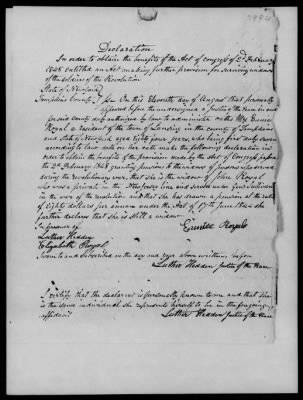 Declaration
In order to obtain the benefits of the Act of Congress of 2d February
1848 entitled an Act making further provision for surviving widows
of the soldiers of the Revolution
State of New York
Tompkins County } ss On this Eleventh day of August that personally
appeared before the undersigned a Justice of the Peace in and
for said county duly authorized by law to administer oaths Mrs Eunice
Royal a resident of the town of Lansing in the county of Tompkins
and State of New York aged eighty four years, who being first duly sworn
according to law doth on her oath make the following declaration in
order to obtain the benefits of the provision made by the Act of Congress passed
the 2d February 1848 granting pensions to the widows of persons who served
during the revolutionary war, that she is the widow of John Royal
who was a private in the New Jersey line and served under Genl Sullivan
in the war of the revolution and that she has drawn a pension at the rate
of Eighty dollars per annum under the Act of 17th June 1844 she
further declares that she is still a widow
In presence of Eunice Royal
Luther Hedden
Elizabeth Royal
Sworn to and subscribed on the day and year above written before
Luther Hedden Justice of the Peace
I certify that the declarent is personally known to me and that she
is the same individual she represents herself to be in the foregoing
affidavit Luther Hedden Justice of the Peace